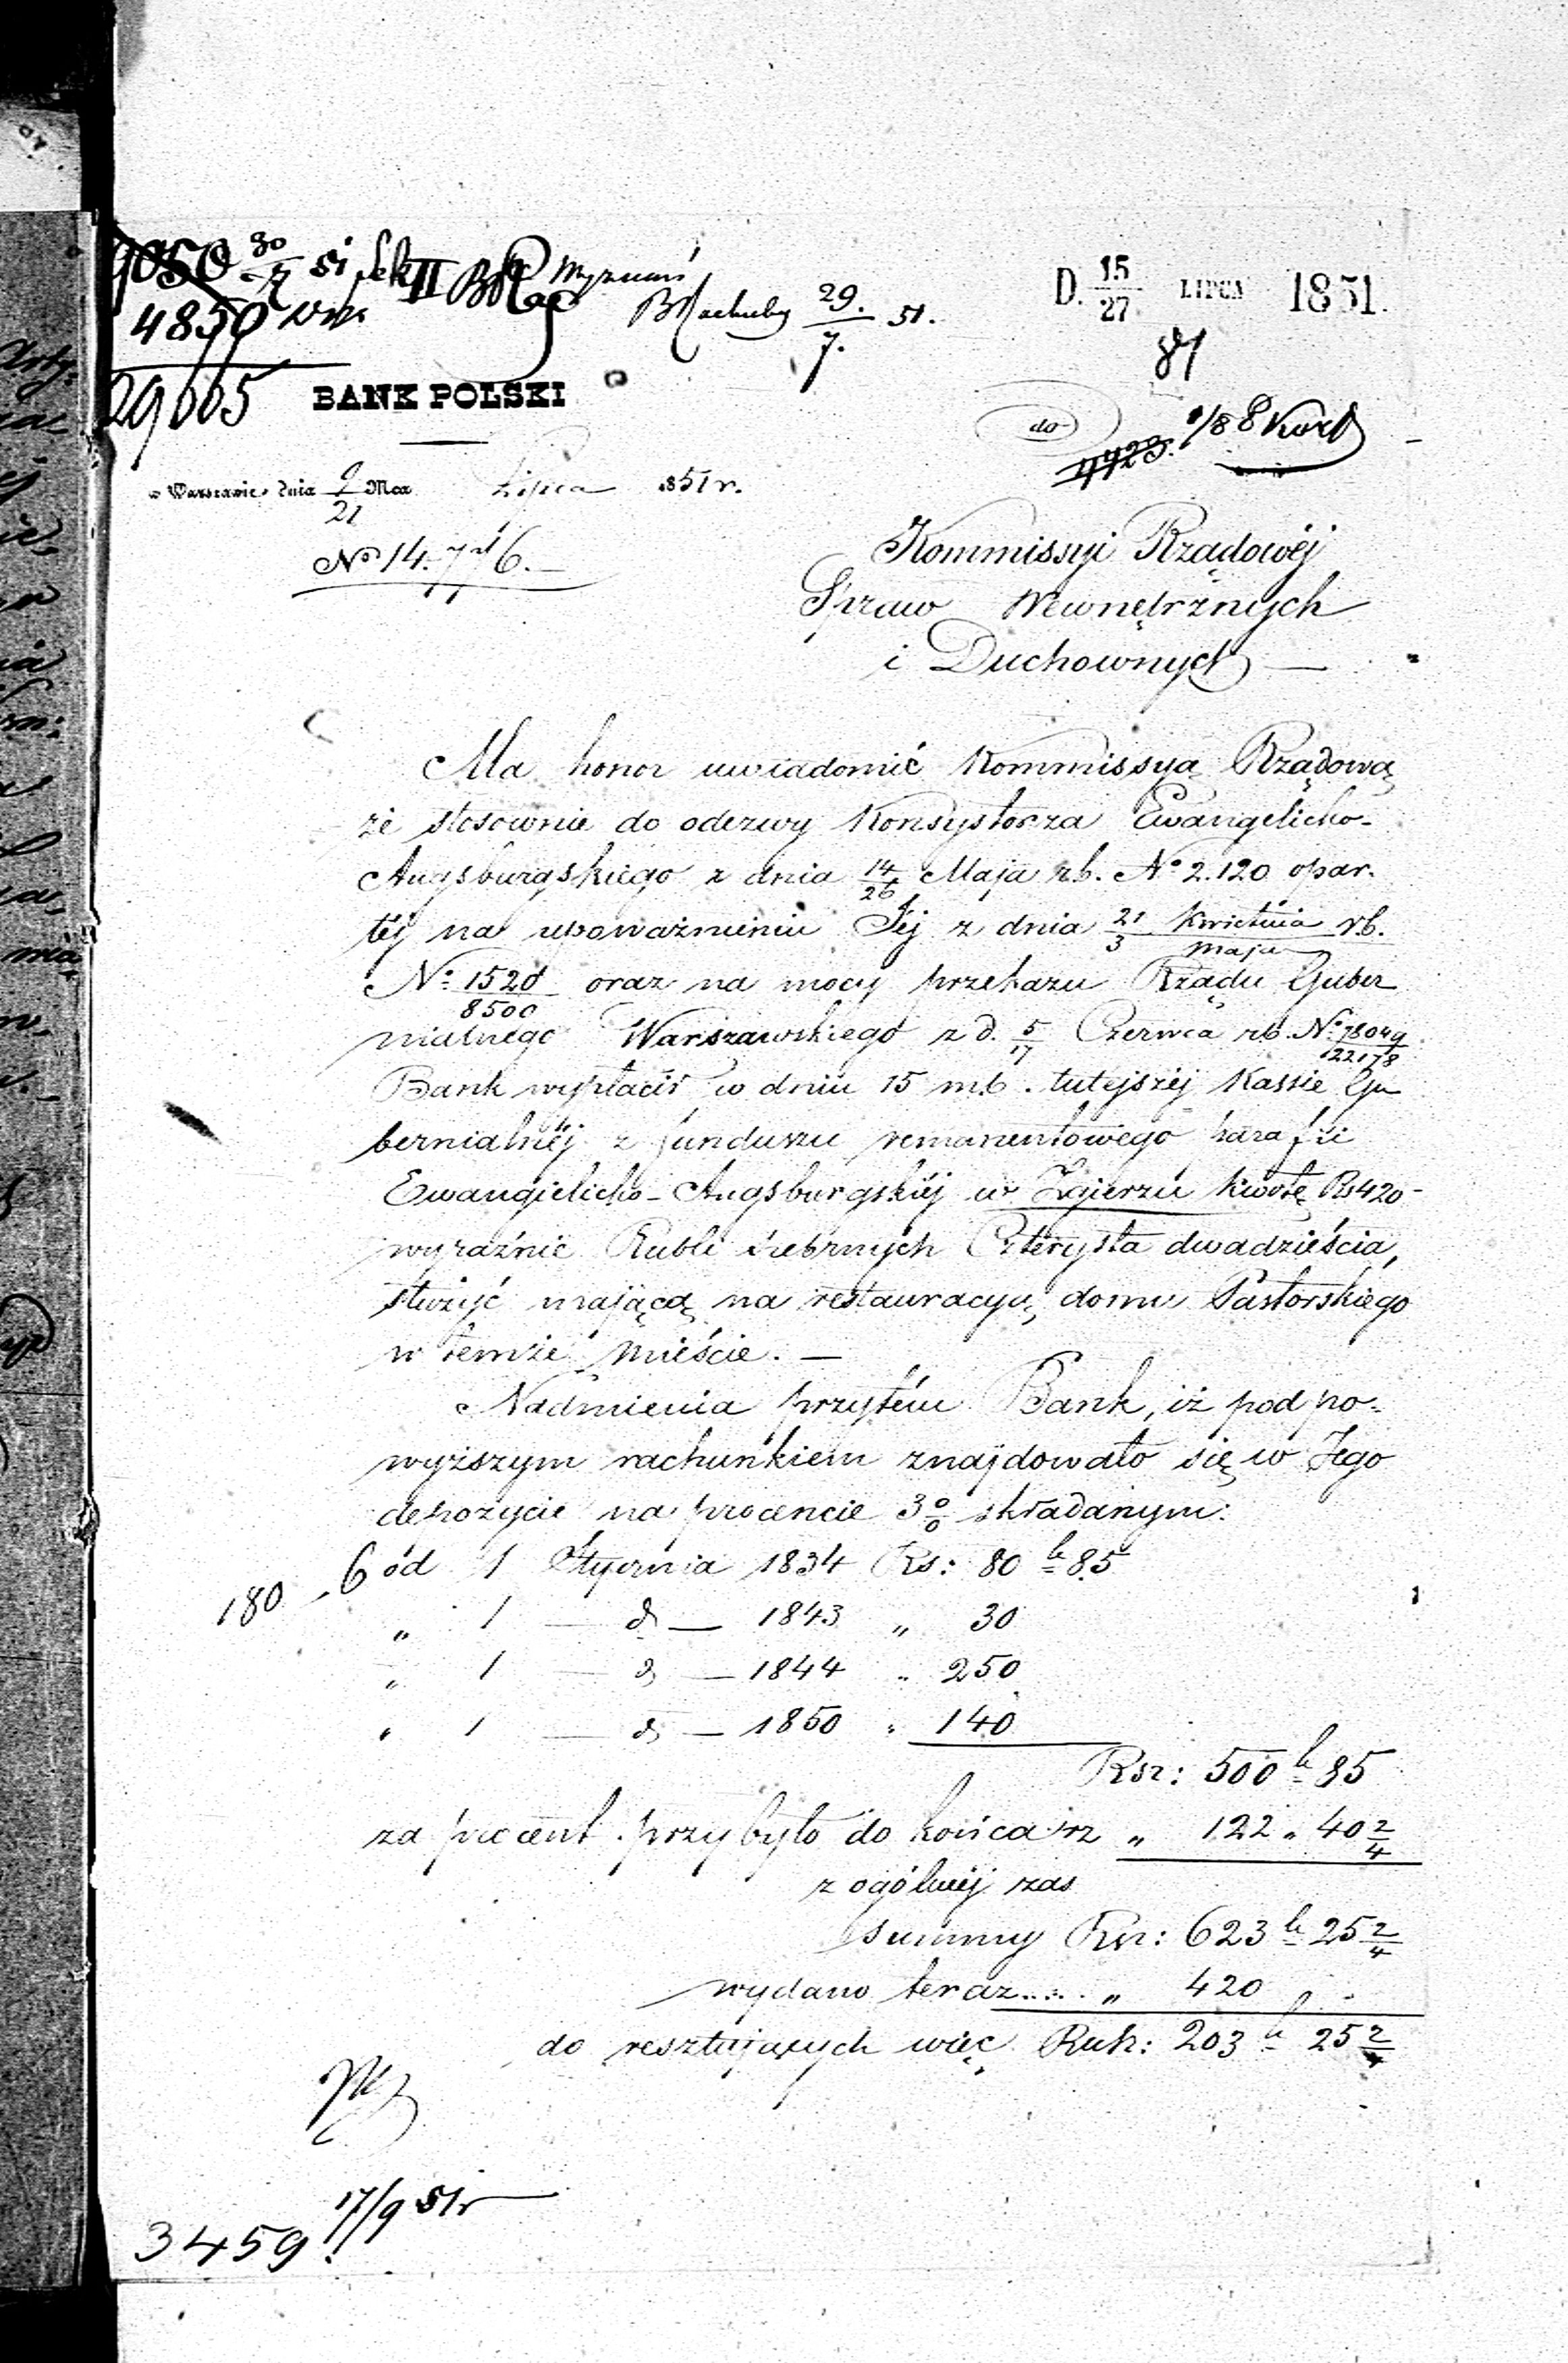 4850
29665
29.
7. 51.
D. 15/27 LIPCA 1851.
BANK POLSKI
do
w Warszawie dnia 9/21 Mca Lipca 1851 r.
4923.
No 14.776.
Kommissyi Rządowéj
Spraw Wewnętrznych
i Duchownych —
Ma honor uwiadomić Kommissyą Rządową
że stosownie do odezwy Konsystorza Ewangelicko-
Augsburgskiego z dnia 14/26 Maja r.b. No 2.120 opar-
téj na upoważnieniu Jéj z dnia 21 Kwietnia/3 Maja r.b.
No 1520/8500 oraz na mocy przekazu Rządu Guber
nialnego Warszawskiego z d. 5/17 Czerwca r.b. No 78049/122178
Bank wypłacił w dniu 15 m.b. tutejszéj Kassie Gu
bernialnéj z funduszu remanentowego parafii
Ewangielicko-Augsburgskiéj w Zgierzu kwotę Rs 420-
wyraźnie Rubli srebrnych Czterysta dwadzieścia,
służyć mającą na restauracyę domu Pastorskiego
w temże mieście. —
Nadmienia przytém Bank, iż pod po-
wyższym rachunkiem znajdowało się w Jego
depozycie na procencie 3 0/0 składanym:
180 6 od 1 Stycznia 1834 Rs: 80 k 85
„ 1 — d — 1843 „ 30
„ 1 — d — 1844 „ 250
„ 1 — d — 1850 „ 140
Rsr: 500 k 85
za procent przybyło do końca rz „ 122 „ 40 2/4
z ogólnéj zas
summy Rsr: 623 k 25 2/4
wydano teraz.... „ 420 „ -
do resztujących więc Rub: 203 k 25 2/4
17/9 51r
3459